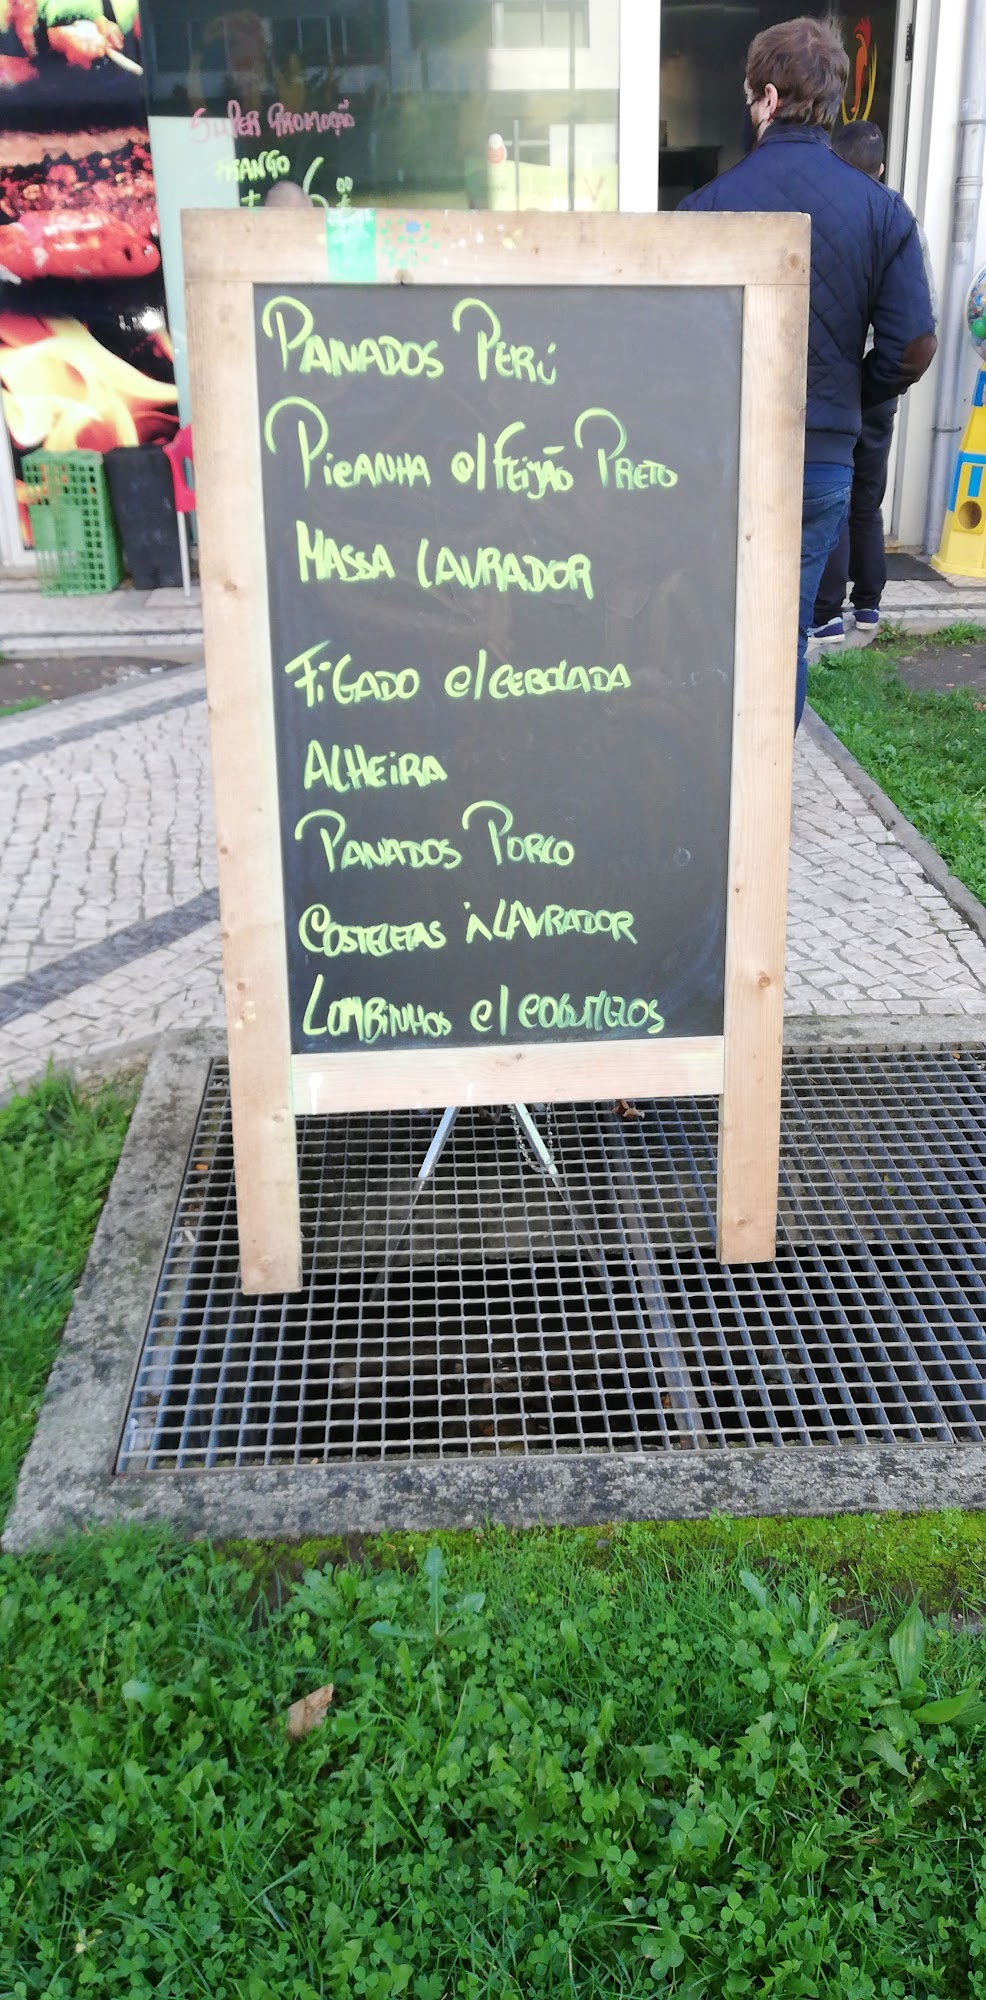 SUPER PROMOÇÃO
FRANGO
+ 6,00
€
PANADOS PERÚ
PICANHA C/FEIJÃO PRETO
MASSA LAVRADOR
FIGADO C/CEBOLADA
ALHEIRA
PANADOS PORCO
COSTELETAS À LAVRADOR
LOMBINHOS C/COGUMELOS